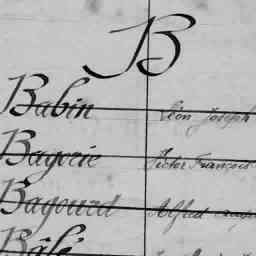 B
Babin Léon Joseph
Bagorie Victor François
Bagourd Alfred
Bâlé